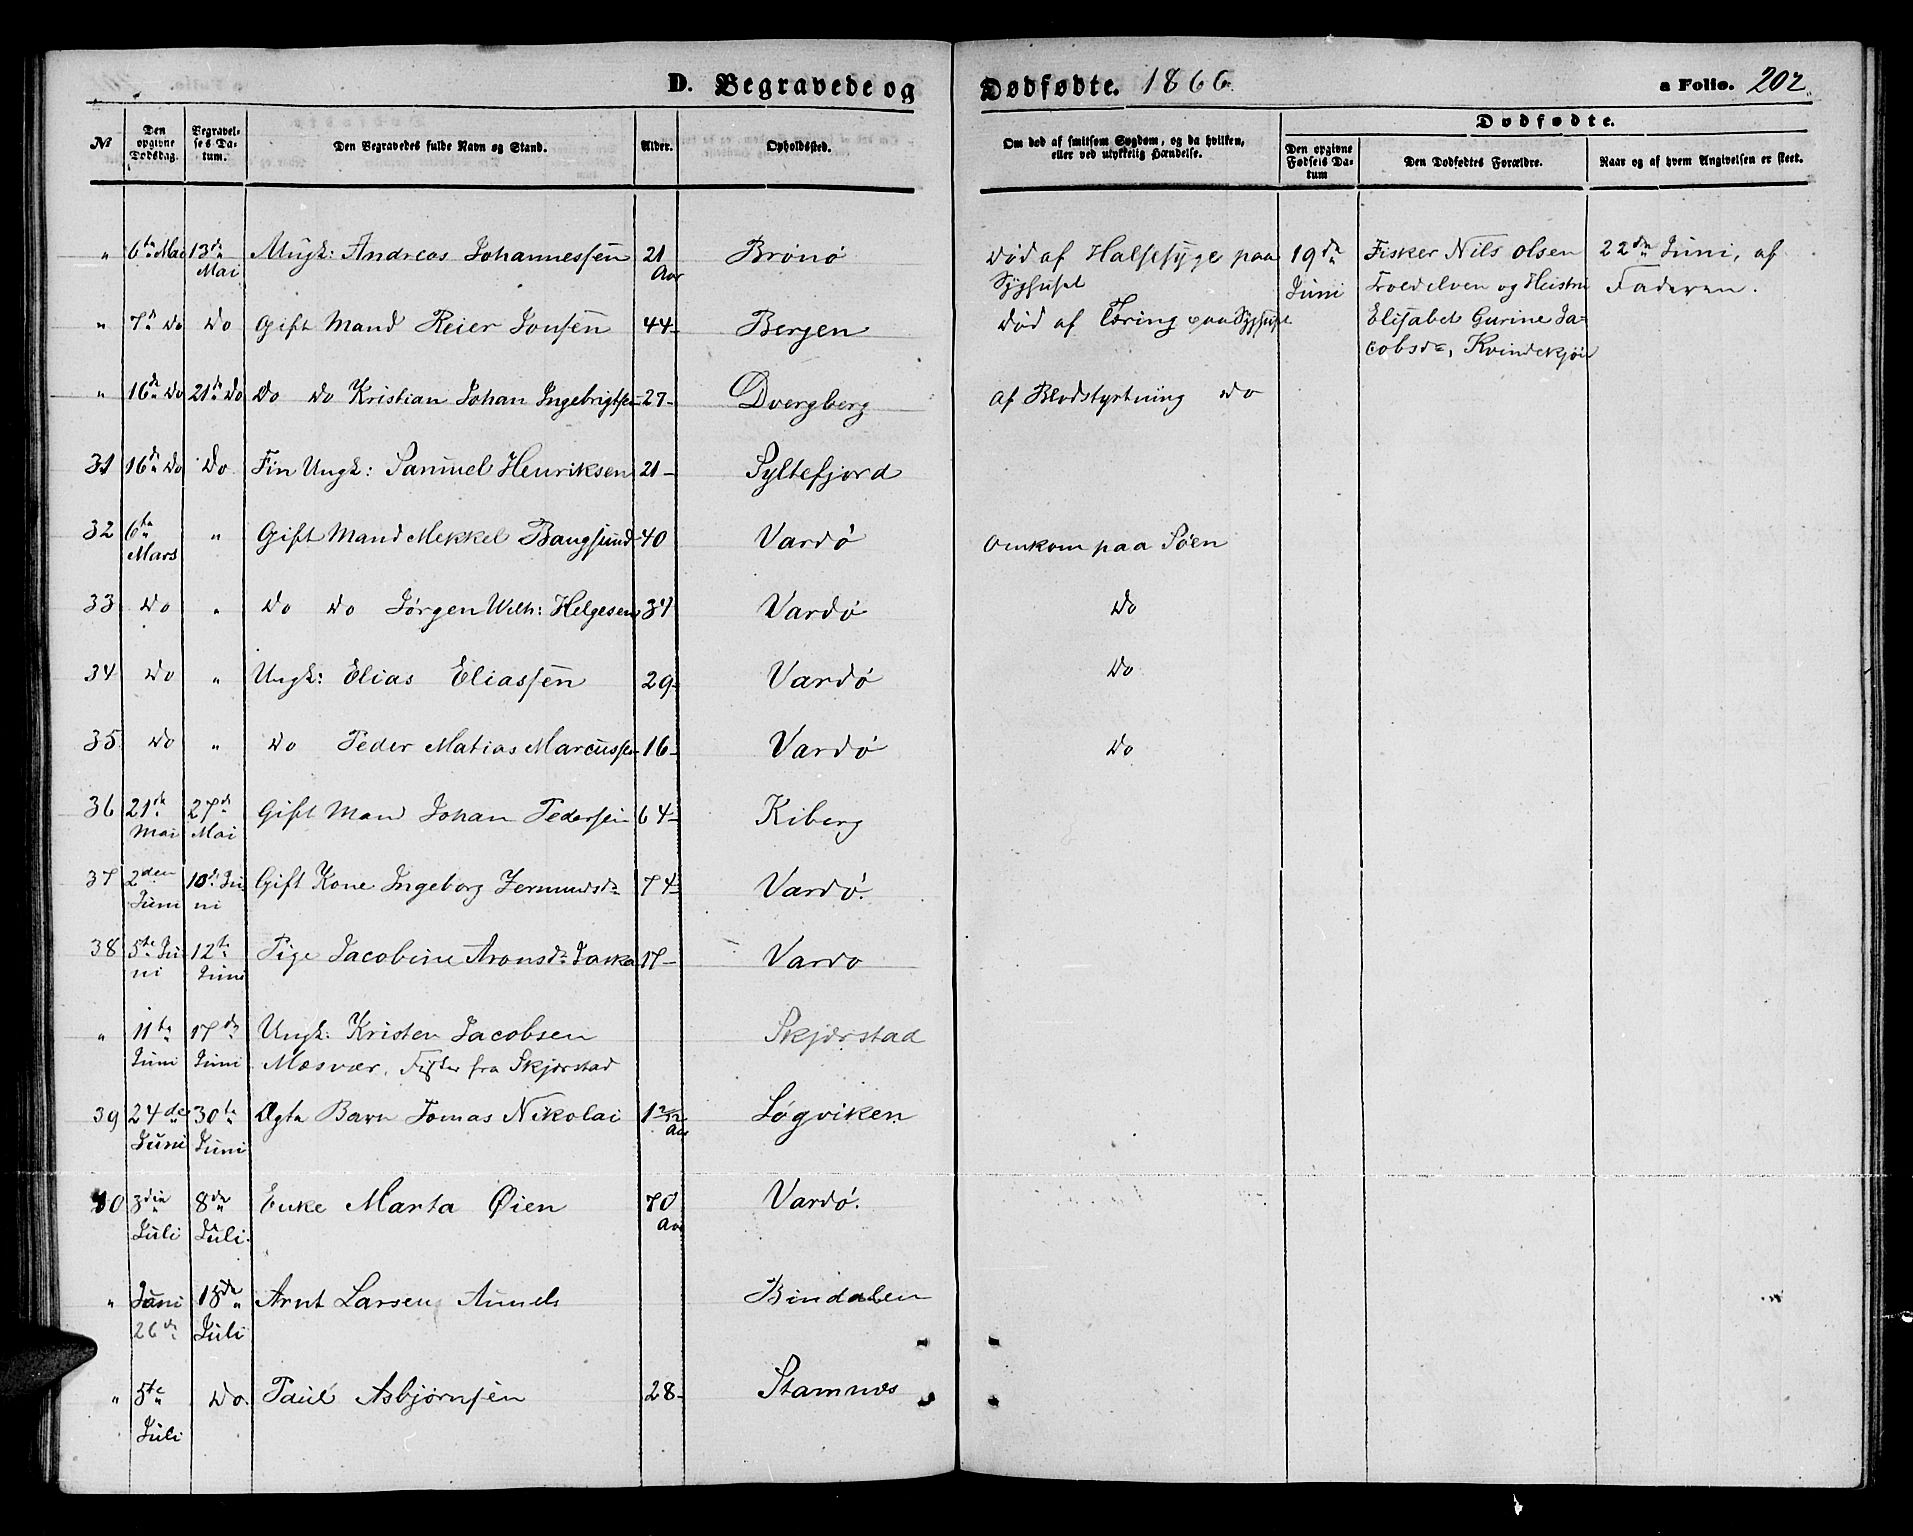 D. Begravede og Dødfødte. 1866. a Folio. 202.
№ Den opgivne Dødsdag. Begravelses Datum. Den Begravedes fulde Navn og Stand. Alder. Opholdssted. Om død af smitsom Sygdom, og da hvilken, eller ved ulykkelig Hændelse. Dødfødte. Den opgivne Fødsels Datum Den Dødfødtes Forældre. Naar og af hvem Angivelsen er skeet.
" 6te Mai 13de Mai Ungk: Andreas Johannessen 21 Aar Brønø død af Halsesyge paa Sygehuset 19de Juni Fisker Nils Olsen 22de Juni, af
og Hustru Faderen.
" 7de Do Do Gift Mand Reier Jonsen 44- Bergen død af Tæring paa Sygehuset Elisabet Gurine Ja-
cobsdr, Kvindekjøn
" 16de Do 21de Do Do Do Kristian Johan Ingebrigtsen 27- Dvergberg af Blodstyrtning Do
31 16de Do Do Fin Ungk: Samuel Henriksen 21- Syltefjord
32 6te Mars " Gift Mand Mekkel Bangsund 40 Vardø Omkom paa Søen
33 Do " Do Do Jørgen Wilh: Helgesen Vardø Do
34 Do " Ungk: Elias Eliassen 29- Vardø Do
35 Do " Do Peder Matias Marcussen 16- Vardø Do
36 21de Mai 27de Mai Gift Mand Johan Pedersen 64- Kiberg
37 2den Juni 10de Juni Gift Kone Ingeborg 74- Vardø.
38 5te Juni 12te Juni Pige Jacobine Aronsdr 17- Vardø
" 11te Juni 17de Juni Ungk: Kristen Jacobsen Skjerstad
Mosvær, Fisker fra Skjerstad
39 24de Juni 30te Juni Ægte Barn Tomas Nikolai Løgviken
40 3die Juli 8de Juli. Enke Marta Øien 70 Aar Vardø.
" Juni 26de 15de Juli Arnt Larsen Bindalen
" 5te Juli Do. Paul Asbjørnsen 28- Stamnes